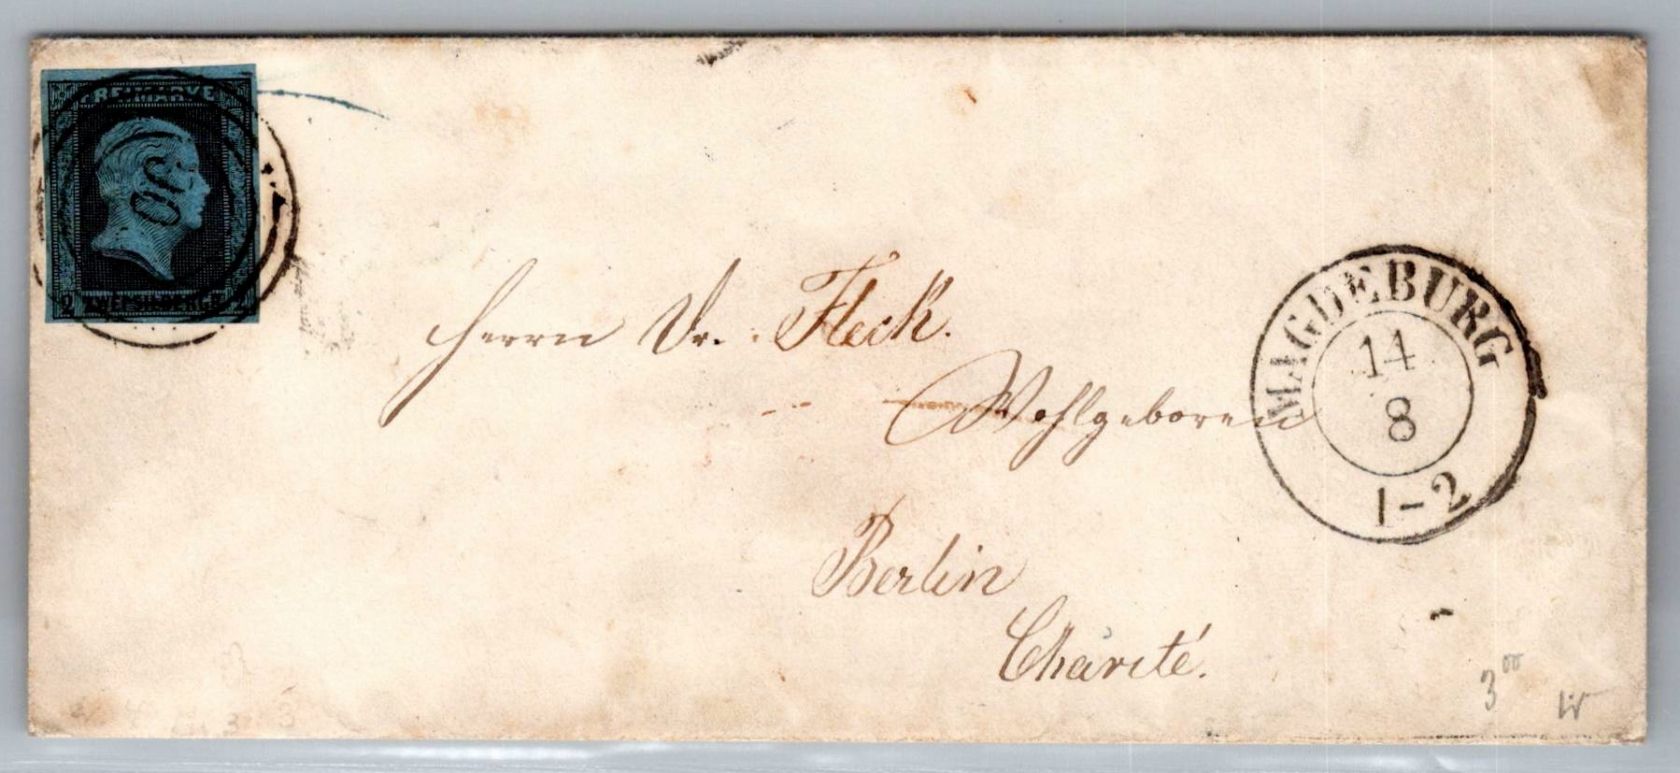 FREIMARKE
2 ZWEI SILBERGR. 2
Herrn Dr. Fleck.
Wohlgeboren
Berlin
Charité.
MAGDEBURG
14
8
1-2
3 00